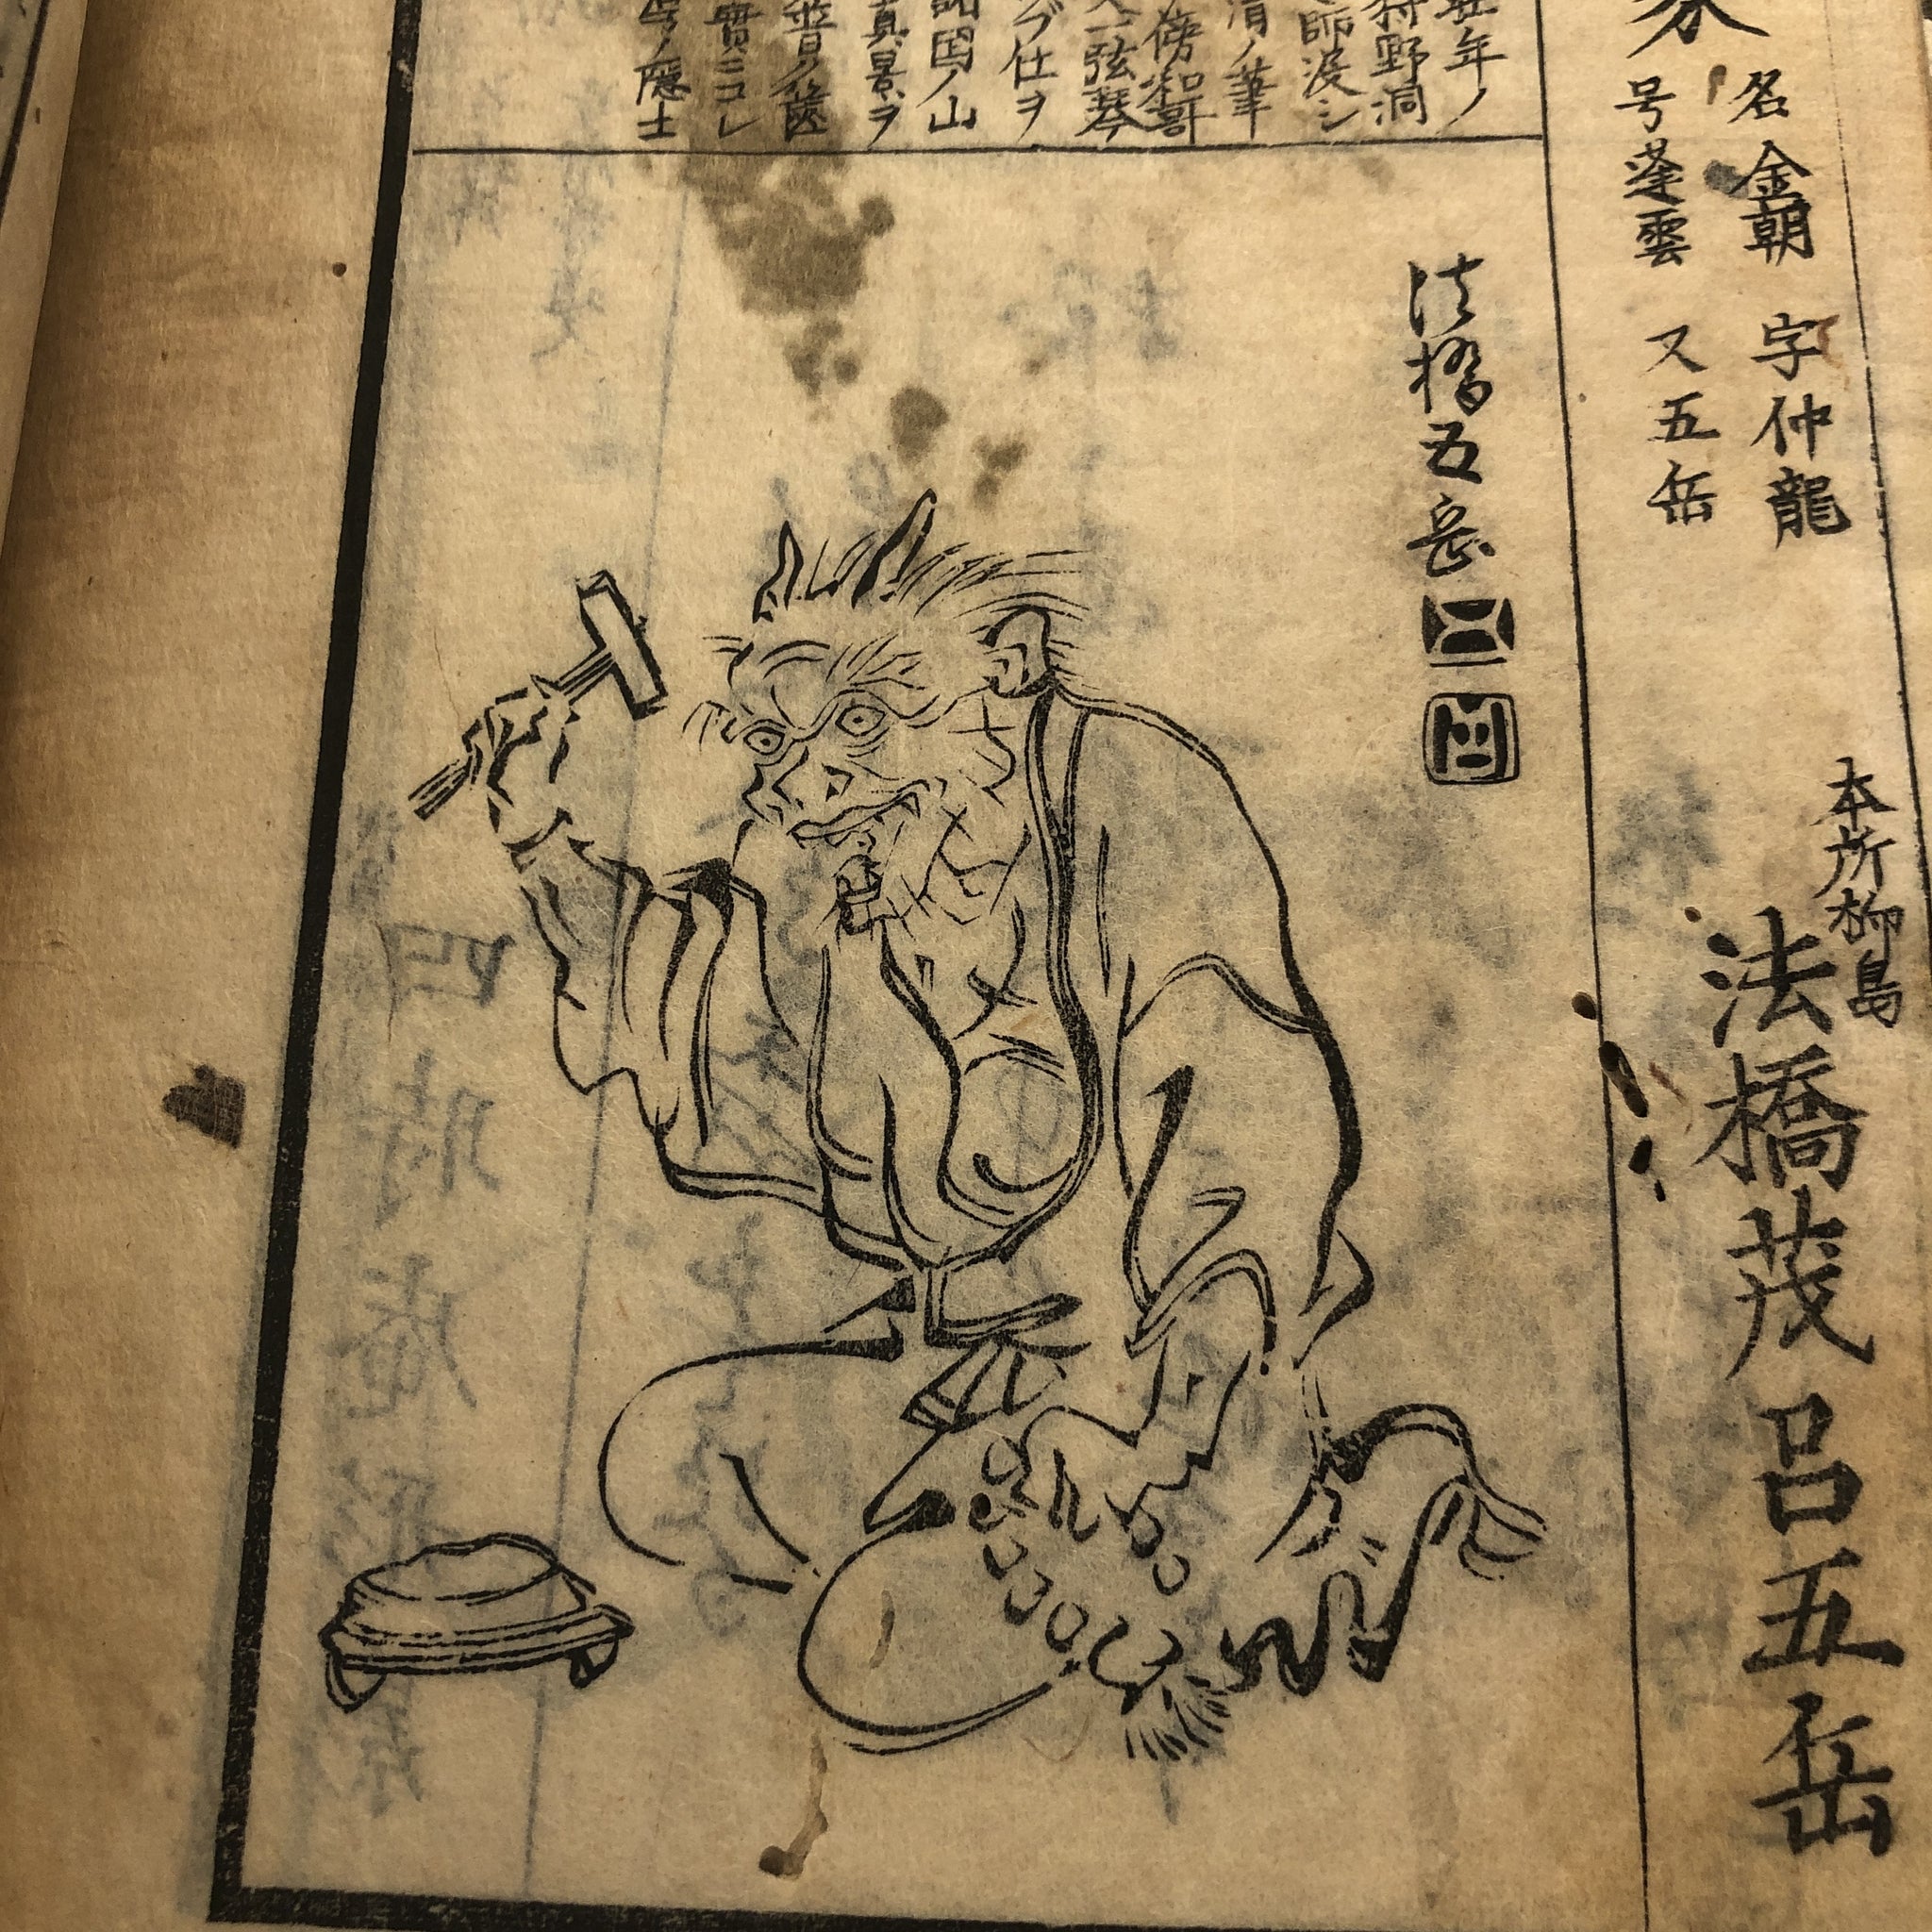 名金朝 字仲龍
号蓬雲 又五岳
本所柳島
法橋茂呂五岳
壮年ノ
狩野洞
師渡シ
清ノ筆
傍和哥
一弦琴
ブ仕ヲ
諸国ノ山
真景ヲ
普ク備
實ニコレ
ノ隠士
法橋五岳